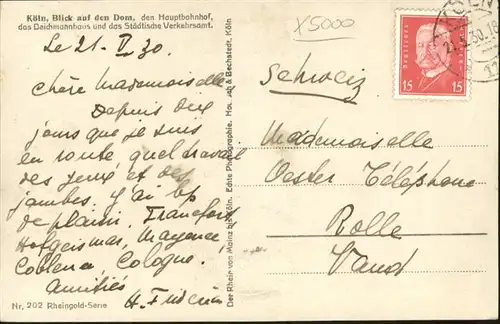 Köln, Blick auf den Dom, den Hauptbahnhof,
das Deichmannhaus und das Städtische Verkehrsamt.
X5000
Le 21. V. 30.
Chère Mademoiselle
Depuis deux
jours que je suis
en route quel travail
des yeux et des
jambes. J'ai bp
de plaisir. Francfort
Hofgeismar, Mayence,
Coblence, Cologne.
Amitiés
H.
Nr. 202 Rheingold-Serie
Der Rhein von Mainz bis Köln. Echte Photographie. & Bechstedt, Köln
Deutsches Reich
15 15
21.5.30.
Schweiz
Mademoiselle
Oester Téléphone
Rolle
Vaud